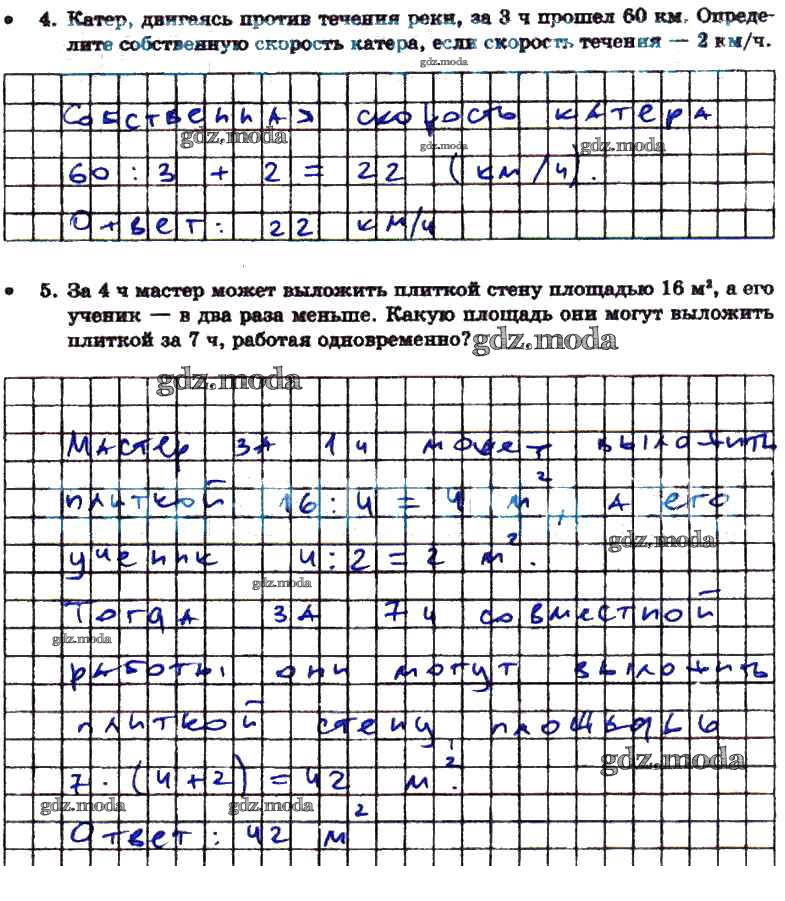 4. Катер, двигаясь против течения реки, за 3 ч прошел 60 км. Опреде-
лите собственную скорость катера, если скорость течения — 2 км/ч.
gdz.moda
Собственная скорость катера
gdz.moda gdz.moda gdz.moda
60 : 3 + 2 = 22 (км/ч).
Ответ: 22 км/ч
5. За 4 ч мастер может выложить плиткой стену площадью 16 м², а его
ученик — в два раза меньше. Какую площадь они могут выложить
плиткой за 7 ч, работая одновременно?
gdz.moda
gdz.moda
Мастер за 1 ч может выложить
плиткой 16 : 4 = 4 м², а его
gdz.moda
ученик 4 : 2 = 2 м².
gdz.moda
Тогда за 7 ч совместной
gdz.moda
работы они могут выложить
плиткой стену площадью
gdz.moda
7 · (4 + 2) = 42 м².
gdz.moda gdz.moda
Ответ: 42 м²